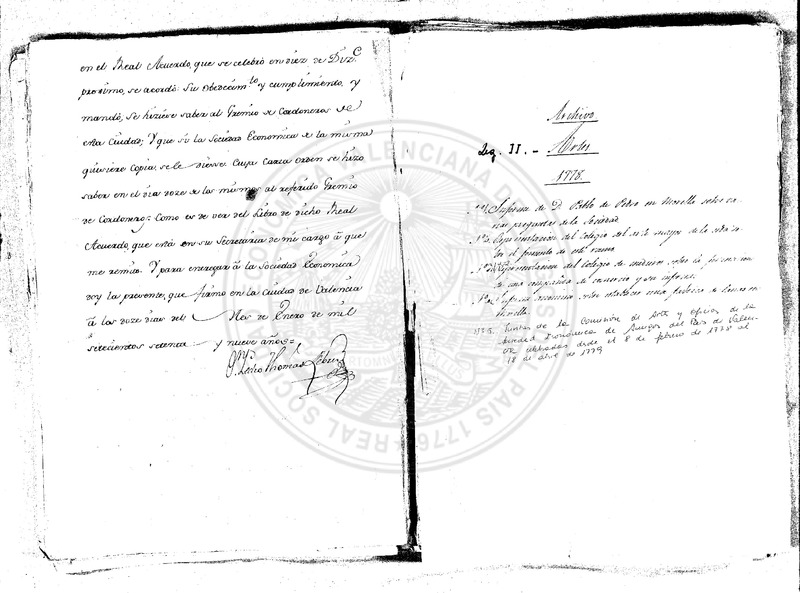 en el Real Acuerdo, que se celebró en diez de Diz.e
proximo, se acordó: Su obedecim.to y cumplimiento, y
mandó, se hiziese saber al Gremio de Cordoneros de
esta Ciudad; Y que si la Sociedad Economica de la misma
quisiere Copia, se le diesse; Cuya Carta orden se hizo
saber en el dia doze de los mismos al referido Gremio
de Cordoneros: Como es de ver del Libro de dicho Real
Acuerdo, que está en su Secretaria de mi cargo à que
me remito. Y para entregar à la Sociedad Economica
doy la presente, que firmo en la Ciudad de Valencia
à los doze dias del Mes de Enero de mil
setecientos setenta y nueve años=
Pedro Thomas
Archivo
Leg. II. - Artes
1778.
Informe de D. Pablo de Pedro en Morella sobre
preguntas de la Sociedad
Representacion del Colegio del Arte mayor de la seda
en el fomento de este ramo
Representacion del Colegio de
de una compañia de comercio y su informe
Informe sobre establecer una fabrica de
Morella
nº 5. Juntas de la Comisión de Arte y oficios de la
Sociedad Económica de Amigos del País de Valen-
cia celebradas desde el 8 de febrero de 1778 al
18 de abril de 1779
SOCIEDAD ECONÓMICA VALENCIANA PAIS 1776 - REAL